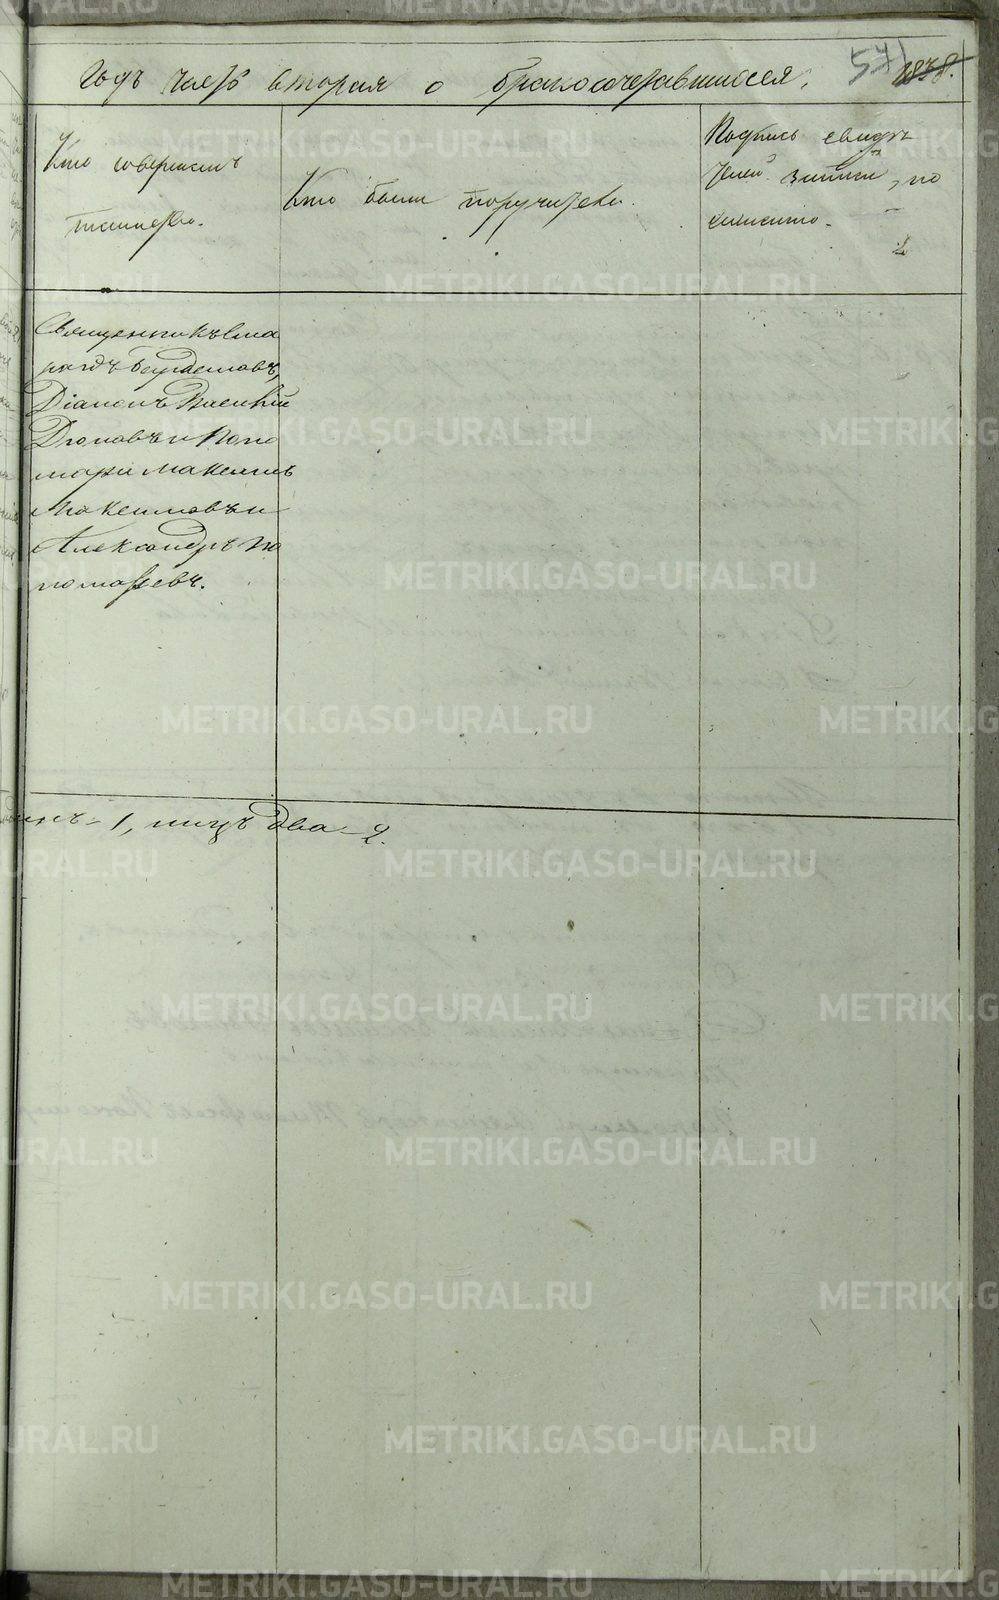 годъ часть вторая о бракосочетавшихся.
571
1838.
Кто совершалъ
таинство.
Кто были поручители.
Подпись свидѣ
телей записи, по
желанію.
Священникъ Сма
рагдъ
Діаконъ Василій
Діонавъ и Поно
мари Максимъ
Максимовъ и
Александръ По
номаревъ.
1, лицъ два 2.
METRIKI.GASO-URAL.RU